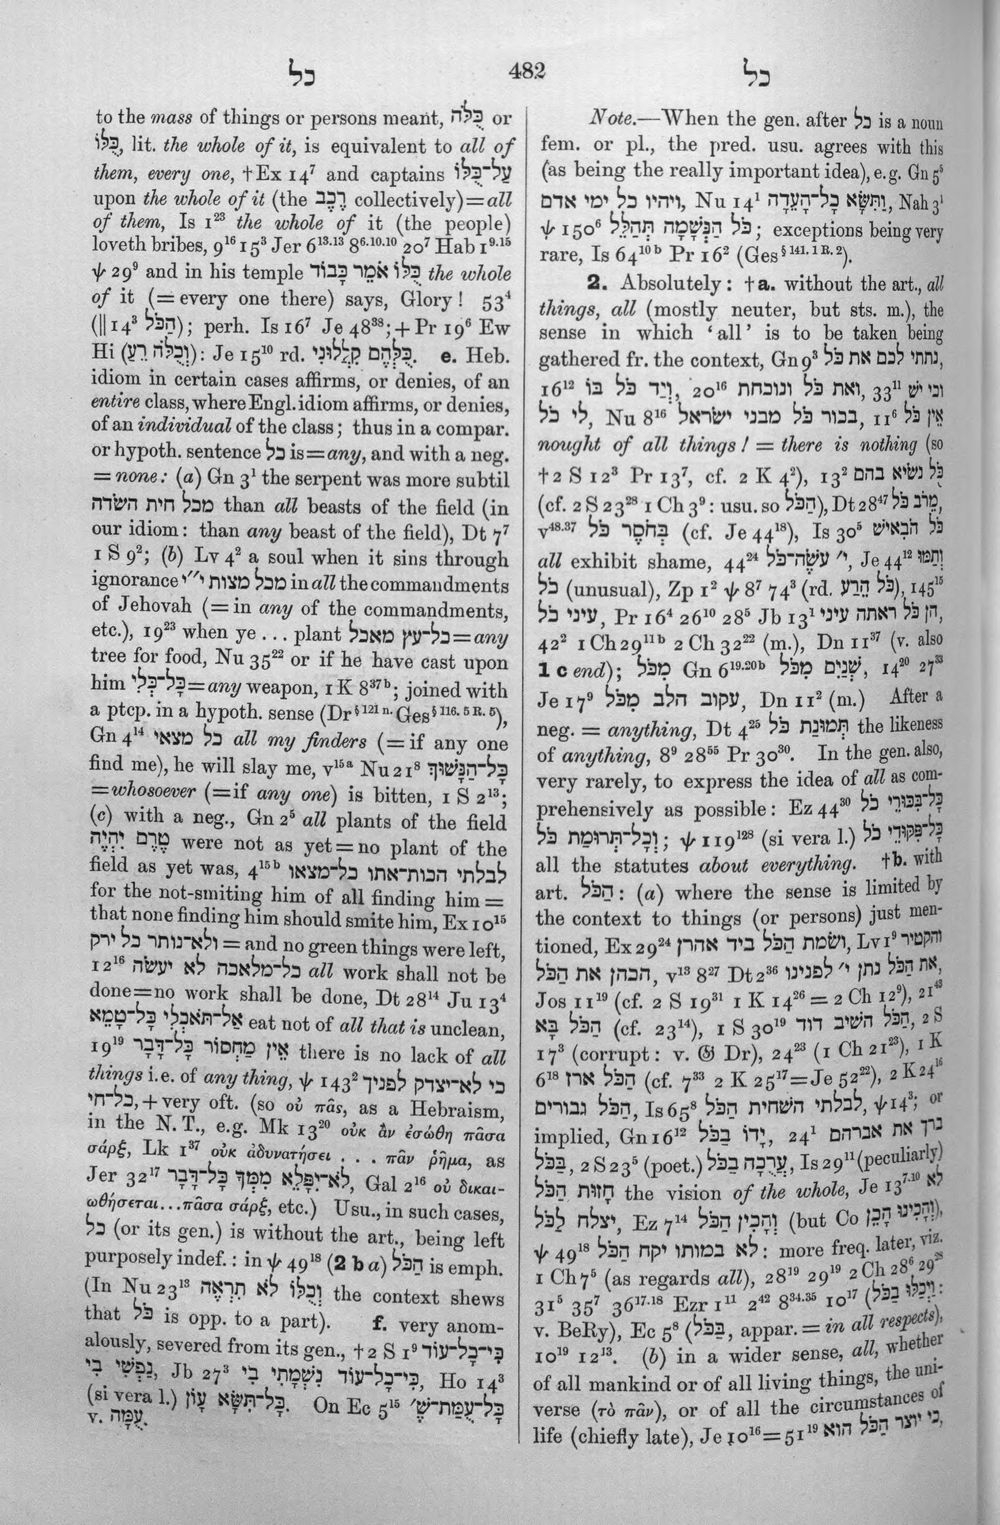 כל 482 כל
to the mass of things or persons meant, כֻּלֹּה or
כֻּלּוֹ, lit. the whole of it, is equivalent to all of
them, every one, †Ex 14⁷ and captains עַל־כֻּלּוֹ
upon the whole of it (the רֶכֶב collectively)=all
of them, Is 1²³ the whole of it (the people)
loveth bribes, 9¹⁶ 15³ Jer 6¹³·¹³ 8⁶·¹⁰·¹⁰ 20⁷ Hab 1⁹·¹⁵
ψ 29⁹ and in his temple כֻּלּוֹ אֹמֵר כָּבוֹד the whole
of it (=every one there) says, Glory! 53⁴
(‖14³ הַכֹּל); perh. Is 16⁷ Je 48³⁸;+Pr 19⁶ Ew
Hi (וְכֻלֹּה רֵעַ): Je 15¹⁰ rd. כֻּלְּהֶם קִלְלוּנִי. e. Heb.
idiom in certain cases affirms, or denies, of an
entire class, where Engl. idiom affirms, or denies,
of an individual of the class; thus in a compar.
or hypoth. sentence כל is=any, and with a neg.
=none: (a) Gn 3¹ the serpent was more subtil
מכל חית השדה than all beasts of the field (in
our idiom: than any beast of the field), Dt 7⁷
1 S 9²; (b) Lv 4² a soul when it sins through
ignorance מכל מצות י״י in all the commandments
of Jehovah (=in any of the commandments,
etc.), 19²³ when ye ... plant כל־עץ מאכל=any
tree for food, Nu 35²² or if he have cast upon
him כָּל־כְּלִי=any weapon, 1 K 8³⁷ᵇ; joined with
a ptcp. in a hypoth. sense (Dr§ 121 n. Ges§ 116. 5 R. 5),
Gn 4¹⁴ כל מצאי all my finders (=if any one
find me), he will slay me, v¹⁵ᵃ Nu 21⁸ כָּל־הַנָּשׁוּךְ
=whosoever (=if any one) is bitten, 1 S 2¹³;
(c) with a neg., Gn 2⁵ all plants of the field
טֶרֶם יִהְיֶה were not as yet=no plant of the
field as yet was, 4¹⁵ᵇ לבלתי הכות־אתו כל־מצאו
for the not-smiting him of all finding him=
that none finding him should smite him, Ex 10¹⁵
ולא־נותר כל ירק=and no green things were left,
12¹⁶ כל־מלאכה לא יעשה all work shall not be
done=no work shall be done, Dt 28¹⁴ Ju 13⁴
אַל־תֹּאכְלִי כָּל־טָמֵא eat not of all that is unclean,
19¹⁹ אֵין מַחְסוֹר כָּל־דָּבָר there is no lack of all
things i.e. of any thing, ψ 143² כי לא־יצדק לפניך
כל־חי, + very oft. (so οὐ πᾶς, as a Hebraism,
in the N. T., e.g. Mk 13²⁰ οὐκ ἂν ἐσώθη πᾶσα
σάρξ, Lk 1³⁷ οὐκ ἀδυνατήσει ... πᾶν ῥῆμα, as
Jer 32¹⁷ לֹא־יִפָּלֵא מִמְּךָ כָּל־דָּבָר, Gal 2¹⁶ οὐ δικαι-
ωθήσεται...πᾶσα σάρξ, etc.) Usu., in such cases,
כל (or its gen.) is without the art., being left
purposely indef.: in ψ 49¹⁸ (2 b a) הַכֹּל is emph.
(In Nu 23¹³ וְכֻלּוֹ לֹא תִרְאֶה the context shews
that כֹּל is opp. to a part). f. very anom-
alously, severed from its gen., †2 S 1⁹ כִּי־כָל־עוֹד
נַפְשִׁי בִּי, Jb 27³ כִּי־כָל־עוֹד נִשְׁמָתִי בִי, Ho 14³
(si vera l.) כָּל־תִּשָּׂא עָוֹן. On Ec 5¹⁵ כָּל־עֻמַּת־שֶׁ׳
v. עֻמָּה.
Note.—When the gen. after כל is a noun
fem. or pl., the pred. usu. agrees with this
(as being the really important idea), e.g. Gn 5⁵
ויהיו כל ימי אדם, Nu 14¹ וַתִּשָּׂא כָּל־הָעֵדָה, Nah 3¹
ψ 150⁶ כֹּל הַנְּשָׁמָה תְּהַלֵּל; exceptions being very
rare, Is 64¹⁰ᵇ Pr 16² (Ges§ 141. 1 R. 2).
2. Absolutely: †a. without the art., all
things, all (mostly neuter, but sts. m.), the
sense in which 'all' is to be taken being
gathered fr. the context, Gn 9³ נתתי לכם את כֹּל,
16¹² יָד כֹּל בּוֹ, 20¹⁶ ואת כֹּל ונוכחת, 33¹¹ וכי יש
לי כל, Nu 8¹⁶ בכור כֹּל מבני ישראל, 11⁶ אֵין כֹּל
nought of all things! = there is nothing (so
†2 S 12³ Pr 13⁷, cf. 2 K 4²), 13² כֹּל נשיא בהם
(cf. 2 S 23²⁸ 1 Ch 3⁹: usu. so הַכֹּל), Dt 28⁴⁷ מֵרֹב כֹּל,
v⁴⁸·³⁷ בְּחֹסֶר כֹּל (cf. Je 44¹⁸), Is 30⁵ כֹּל הֹבְאִישׁ
all exhibit shame, 44²⁴ י״ עֹשֶׂה־כֹּל, Je 44¹² וְתַמּוּ
כֹל (unusual), Zp 1² ψ 8⁷ 74³ (rd. כֹּל הֵרַע), 145¹⁵
עיני כֹל, Pr 16⁴ 26¹⁰ 28⁵ Jb 13¹ הן כֹּל ראתה עיני,
42² 1 Ch 29¹¹ᵇ 2 Ch 32²² (m.), Dn 11³⁷ (v. also
1 c end); מִכֹּל Gn 6¹⁹·²⁰ᵇ שְׁנַיִם מִכֹּל, 14²⁰ 27³³
Je 17⁹ עקוב הלב מִכֹּל, Dn 11² (m.) After a
neg. = anything, Dt 4²⁵ תְּמוּנַת כֹּל the likeness
of anything, 8⁹ 28⁵⁵ Pr 30³⁰. In the gen. also,
very rarely, to express the idea of all as com-
prehensively as possible: Ez 44³⁰ כָּל־בִּכּוּרֵי כֹל
וְכָל־תְּרוּמַת כֹּל; ψ 119¹²⁸ (si vera l.) כָּל־פִּקּוּדֵי כֹל
all the statutes about everything. †b. with
art. הַכֹּל: (a) where the sense is limited by
the context to things (or persons) just men-
tioned, Ex 29²⁴ ושמת הַכֹּל ביד אהרן, Lv 1⁹ והקטיר
הכהן את הַכֹּל, v¹³ 8²⁷ Dt 2³⁶ את הַכֹּל נתן י״ לפנינו,
Jos 11¹⁹ (cf. 2 S 19³¹ 1 K 14²⁶ = 2 Ch 12⁹), 21⁴³
הַכֹּל בָּא (cf. 23¹⁴), 1 S 30¹⁹ הַכֹּל השיב דוד, 2 S
17³ (corrupt: v. 𝔊 Dr), 24²³ (1 Ch 21²³), 1 K
6¹⁸ הַכֹּל ארז (cf. 7³³ 2 K 25¹⁷=Je 52²²), 2 K 24¹⁶
הַכֹּל גבורים, Is 65⁸ לבלתי השחית הַכֹּל, ψ 14³; or
implied, Gn 16¹² יָדוֹ בַכֹּל, 24¹ ברך את אברהם
בַּכֹּל, 2 S 23⁵ (poet.) עֲרֻכָה בַכֹּל, Is 29¹¹ (peculiarly)
חָזוּת הַכֹּל the vision of the whole, Je 13⁷·¹⁰ לא
יצלח לַכֹּל, Ez 7¹⁴ וְהָכִין הַכֹּל (but Co וְהָכִינוּ הָכֵן),
ψ 49¹⁸ לא במותו יקח הַכֹּל: more freq. later, viz.
1 Ch 7⁵ (as regards all), 28¹⁹ 29¹⁹ 2 Ch 28⁶ 29²⁸
31⁵ 35⁷ 36¹⁷·¹⁸ Ezr 1¹¹ 2⁴² 8³⁴·³⁵ 10¹⁷ (וַיְכַלּוּ בַכֹּל:
v. BeRy), Ec 5⁸ (בַּכֹּל, appar. = in all respects),
10¹⁹ 12¹³. (b) in a wider sense, all, whether
of all mankind or of all living things, the uni-
verse (τὸ πᾶν), or of all the circumstances of
life (chiefly late), Je 10¹⁶=51¹⁹ כי יוצר הַכֹּל הוא,